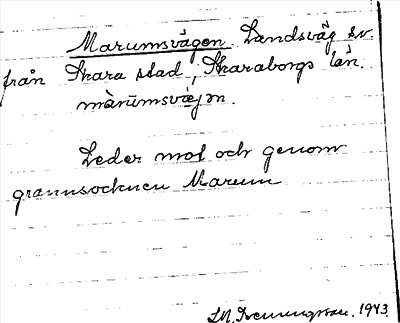 Marumsvägen. Landsväg sv.
från Skara stad, Skaraborgs län.
Leder mot och genom
grannsocknen Marum
1943.